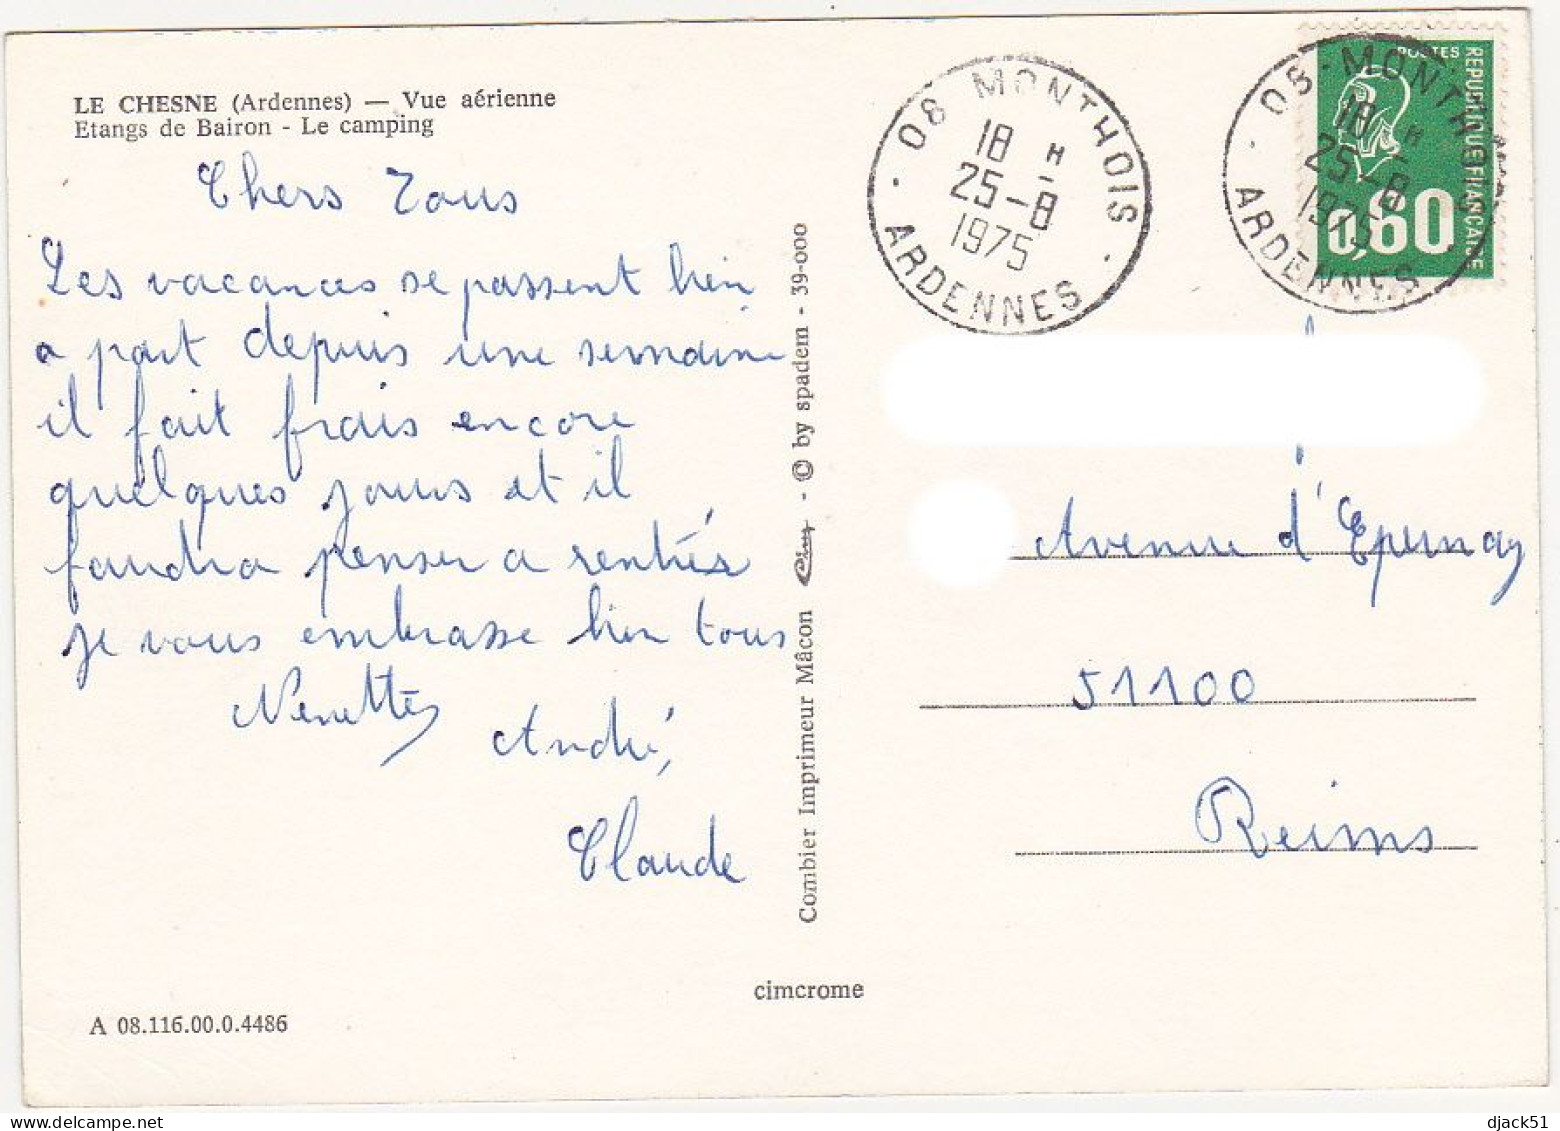 LE CHESNE (Ardennes) — Vue aérienne
Etangs de Bairon - Le camping
Chers Tous
Les vacances se passent bien
a part depuis une semaine
il fait frais encore
quelques jours et il
faudra penser a rentrés
je vous embrasse bien tous
Nenette,
André,
Claude
A 08.116.00.0.4486
cimcrome
Combier Imprimeur Mâcon Cim - © by spadem - 39-000
08 MONTHOIS
18 H
25-8
1975
ARDENNES
08 MONTHOIS
18 H
25-8
1975
ARDENNES
POSTES
REPUBLIQUE FRANCAISE
0,60
Avenue d'Epernay
51100
Reims
djack51